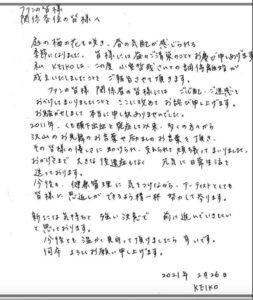 ファンの皆様
関係各位の皆様へ
庭の梅の花も咲き、春の気配が感じられる
季節になりました。皆様には益々ご清栄のこととお慶び申しあげます。
私KEIKOは、この度小室哲哉さんとの調停離婚が
成立いたしましたことご報告させて頂きます。
ファンの皆様 関係者の皆様には ご心配・ご迷惑を
おかけしましたこと ここに改めてお詫び申し上げます。
お騒がせしまして本当に申し訳ありませんでした。
2011年、くも膜下出血を発症して以来、多くの方々から
沢山のお見舞のお言葉や励ましのお言葉を頂き、
その皆様の優しさに助けられ、支えられて頑張ってまいりました。
おかげさまで 大きな後遺症もなく 元気に日常生活を
送っております。
今後も、健康管理に気をつけながら、アーティストとしても
皆様に恩返しができるよう精一杯 努めて参ります。
新たな気持ちと強い決意で 前に進んでいきたい
と思っております。
今後とも温かく見守って頂けましたら幸いです。
何卒よろしくお願い申し上げます。
2021年 2月26日
KEIKO